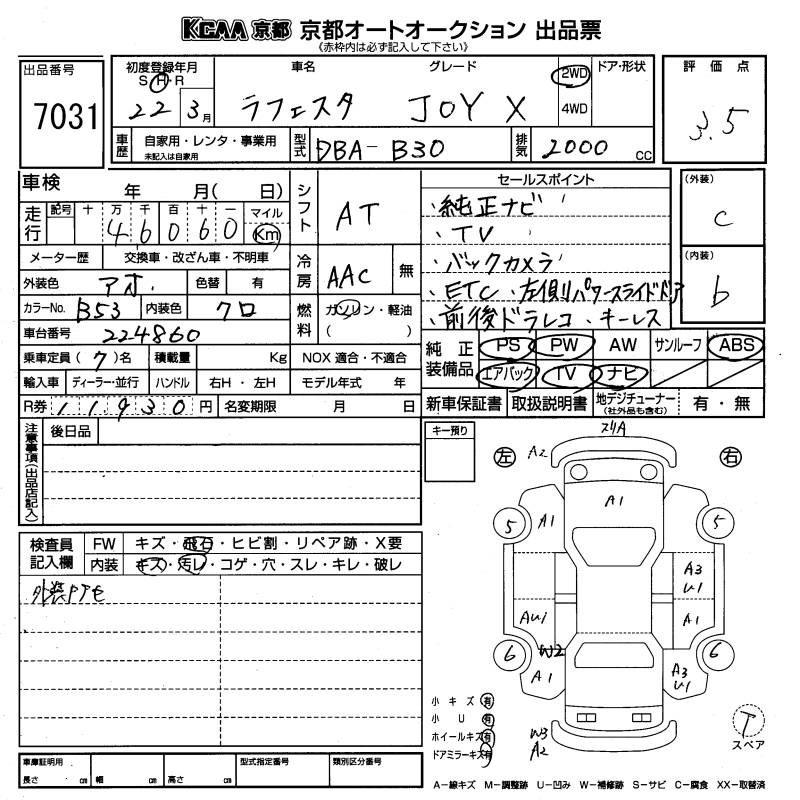 KCAA 京都 京都オートオークション 出品票
《赤枠内は必ず記入して下さい》
出品番号
7031
初度登録年月
S・H・R
22 3月
車名 グレード
ラフェスタ JOY X
2WD
4WD
ドア・形状
評価点
3.5
車歴
自家用・レンタ・事業用
未記入は自家用
型式
DBA-B30
排気
2000 CC
車検 年 月( 日)
走行
記号 十 万 千 百 十 一 マイル
46060 Km
メーター歴 交換車・改ざん車・不明車
外装色 アオ 色替 有
カラーNo. B53 内装色 クロ
車台番号 224860
乗車定員(7)名 積載量 Kg
輸入車 ディーラー・並行 ハンドル 右H・左H
R券 11930円 名変期限 月 日
シフト AT
冷房 AAC 無
燃料 ガソリン・軽油
( )
NOX 適合・不適合
モデル年式 年
セールスポイント
・純正ナビ
・TV
・バックカメラ
・ETC・左側パワースライドドア
・前後ドラレコ・キーレス
(外装)
C
(内装)
b
純正装備品
PS PW AW サンルーフ ABS
エアバック TV ナビ
新車保証書 取扱説明書 地デジチューナー(社外品も含む) 有・無
注意事項(出品店記入)
後日品
キー預り
検査員記入欄
FW キズ・飛石・ヒビ割・リペア跡・X要
内装 キズ・汚レ・コゲ・穴・スレ・キレ・破レ
左 右
A2
A1
5 A1 5
A3
U1
A1
W2
6 A1 6
A3
U1
W3
A2
小キズ 有
小U 有
ホイールキズ 有
ドアミラーキズ 有
T
スペア
車庫証明用
長さ cm 幅 cm 高さ cm
型式指定番号 類別区分番号
A-線キズ M-調整跡 U-凹み W-補修跡 S-サビ C-腐食 XX-取替済